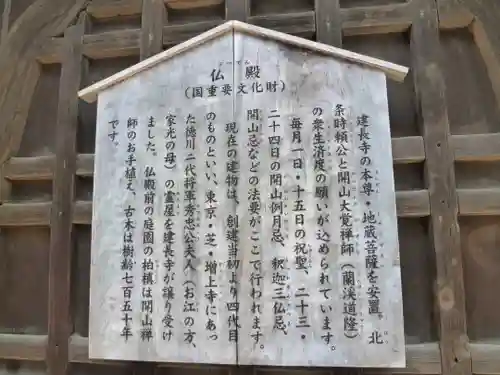 仏殿
ぶつでん
（国重要文化財）
建長寺の本尊・地蔵菩薩を安置。北
条時頼公と開山大覚禅師（蘭渓道隆）
の衆生済度の願いが込められています。
毎月一日・十五日の祝聖、二十三・
二十四日の開山例月忌、釈迦三仏忌、
開山忌などの法要がここで行われます。
現在の建物は、創建当初より四代目
のものといい、東京・芝・増上寺にあっ
た徳川二代将軍秀忠公夫人（お江の方、
家光の母）の霊屋を建長寺が譲り受け
ました。仏殿前の庭園の柏槇は開山禅
師のお手植え、古木は樹齢七百五十年
です。